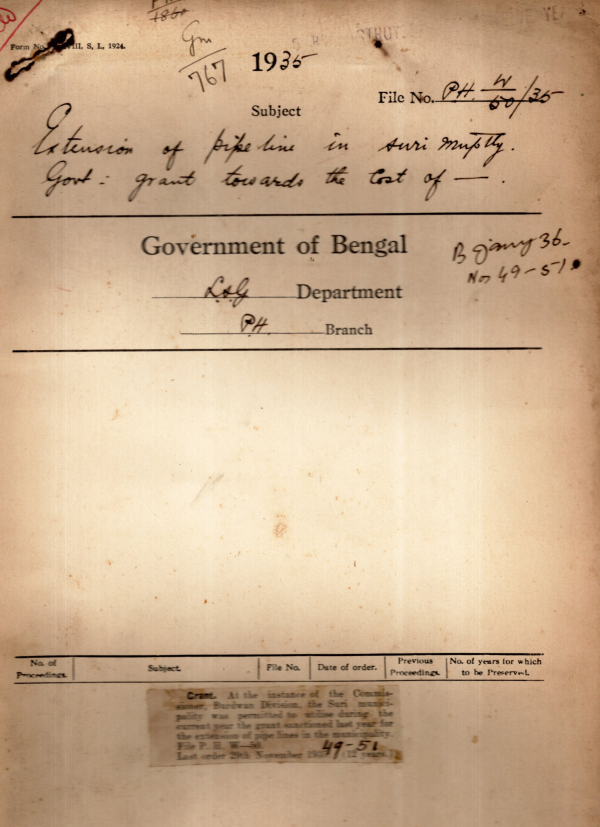 1860
Form No. VIII, S, L, 1924.
Gm
767
1935
File No. P.H. W/50/35
Subject
Extension of pipe line in Suri Muptly.
Govt: grant towards the Cost of —.
Government of Bengal
L.S.G Department
P.H. Branch
B Jany 36-
Nos 49-51
No. of Proceedings. Subject. File No. Date of order. Previous Proceedings. No. of years for which to be Preserved.
Grant. At the instance of the Commis-
sioner, Burdwan Division, the Suri munici-
pality was permitted to utilise during the
current year the grant sanctioned last year for
the extension of pipe lines in the municipality.
File P. H. W—50. 49-51
Last order 29th November (12 years.)